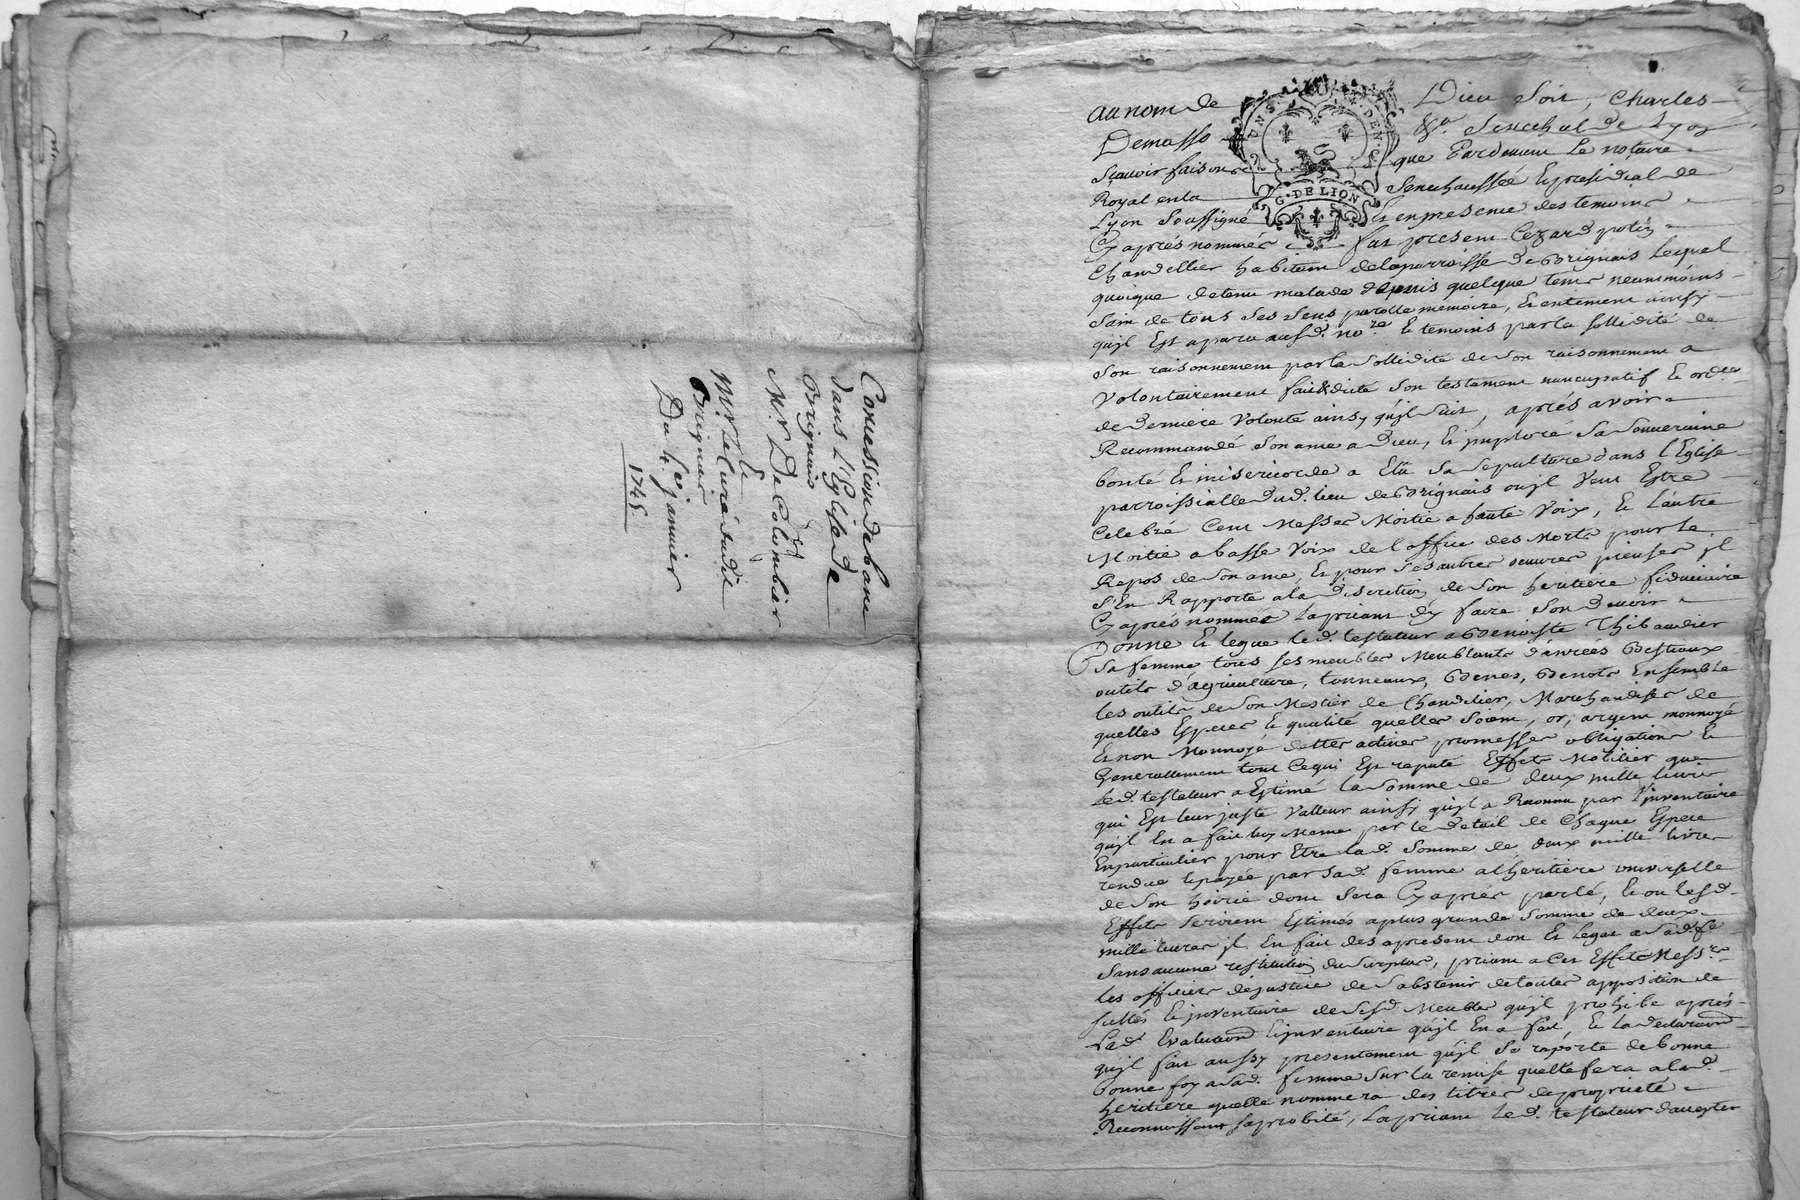 Concession de banc
dans L'Eglise de
Brignais
M.r De Colombier
&
M.r Le Curé dudit
Brignais
Du 4.e janvier
1745
UN S. DEN.
G. DE LION
au nom de Dieu soit, Charles
Demasso Senechal de Lyon
Sçavoir faisons que Pardevant Le notaire
Royal en la Senechaussée et presidial de
Lyon soussigné et en presence des temoins
Cy aprés nommés fut present Cezard potin
Chandellier habitant de la parroisse de Brignais Lequel
quoique detenu malade depuis quelque tems neanmoins
sain de tous ses sens parolle memoire, et entement ainsy
qu'jl Est aparu aud. no.re et temoins par la sollidité de
son raisonnement par la sollidité de son raisonnement a
volontairement fait & dicté son testament nuncupatif et ord.ce
de derniere volonté ainsy qu'jl suit, aprés avoir
Recommandé son ame a Dieu, et jmploré sa souveraine
bonté et misericorde a Elû sa sepulture dans l'Eglise
parroissialle dud. lieu de Brignais ou jl veut Estre
Celebré Cent Messes Moitié a haute voix, et L'autre
Moitié a basse voix de l'office des Morts pour le
Repos de son ame, et pour ses autres oeuvres pieuses jl
s'En Rapporte a la discretion de son heritiere fiduciaire
Cy aprés nommée La priant d'y faire son devoir
Donne et legue led. testateur a Benoiste Thibaudier
sa femme tous ses meubles Meublants danrées Bestiaux
outils d'agriculture, tonneaux, Benes, Benots Ensemble
les outils de son Mestier de Chandelier, Marchandises de
quelles Especes et qualité quelles soient, or, argent monnoyé
Et non Monnoyé dettes actives promesses obligations et
Generallement tout Ce qui Est reputé Effets Mobilier que
led. testateur a Estimé la somme de deux mille livres
qui Est leur juste valleur ainsy qu'jl a Reconnu par l'jnventaire
qu'jl En a fait luy Meme par le detail de Chaque Espece
En particulier pour Etre lad. somme de deux mille livres
rendue et payée par sad. femme a l'heritiere universelle
de son hoirie dont sera Cy aprés parlé, et ou lesd.
Effets seroient Estimés a plus grande somme de deux
mille livres jl En fait des apresent don et legat a sad. fe
sans aucune restitution du surplus, priant a Cet Effet Mess.rs
les officiers de justice de s'abstenir de toutes apposition de
scellés et jnventaire de sesd. Meubles qu'jl prohibe aprés
Lad. Evaluation et jnventaire qu'jl En a fait, et la declaration
qu'jl fait aussy presentement qu'jl se raporte de bonne
bonne foy a sad. femme sur la remise quelle fera a lad.
heritiere quelle nommera des titres de proprieté
Reconnoissant sa probité, La priant led. testateur d'accepter